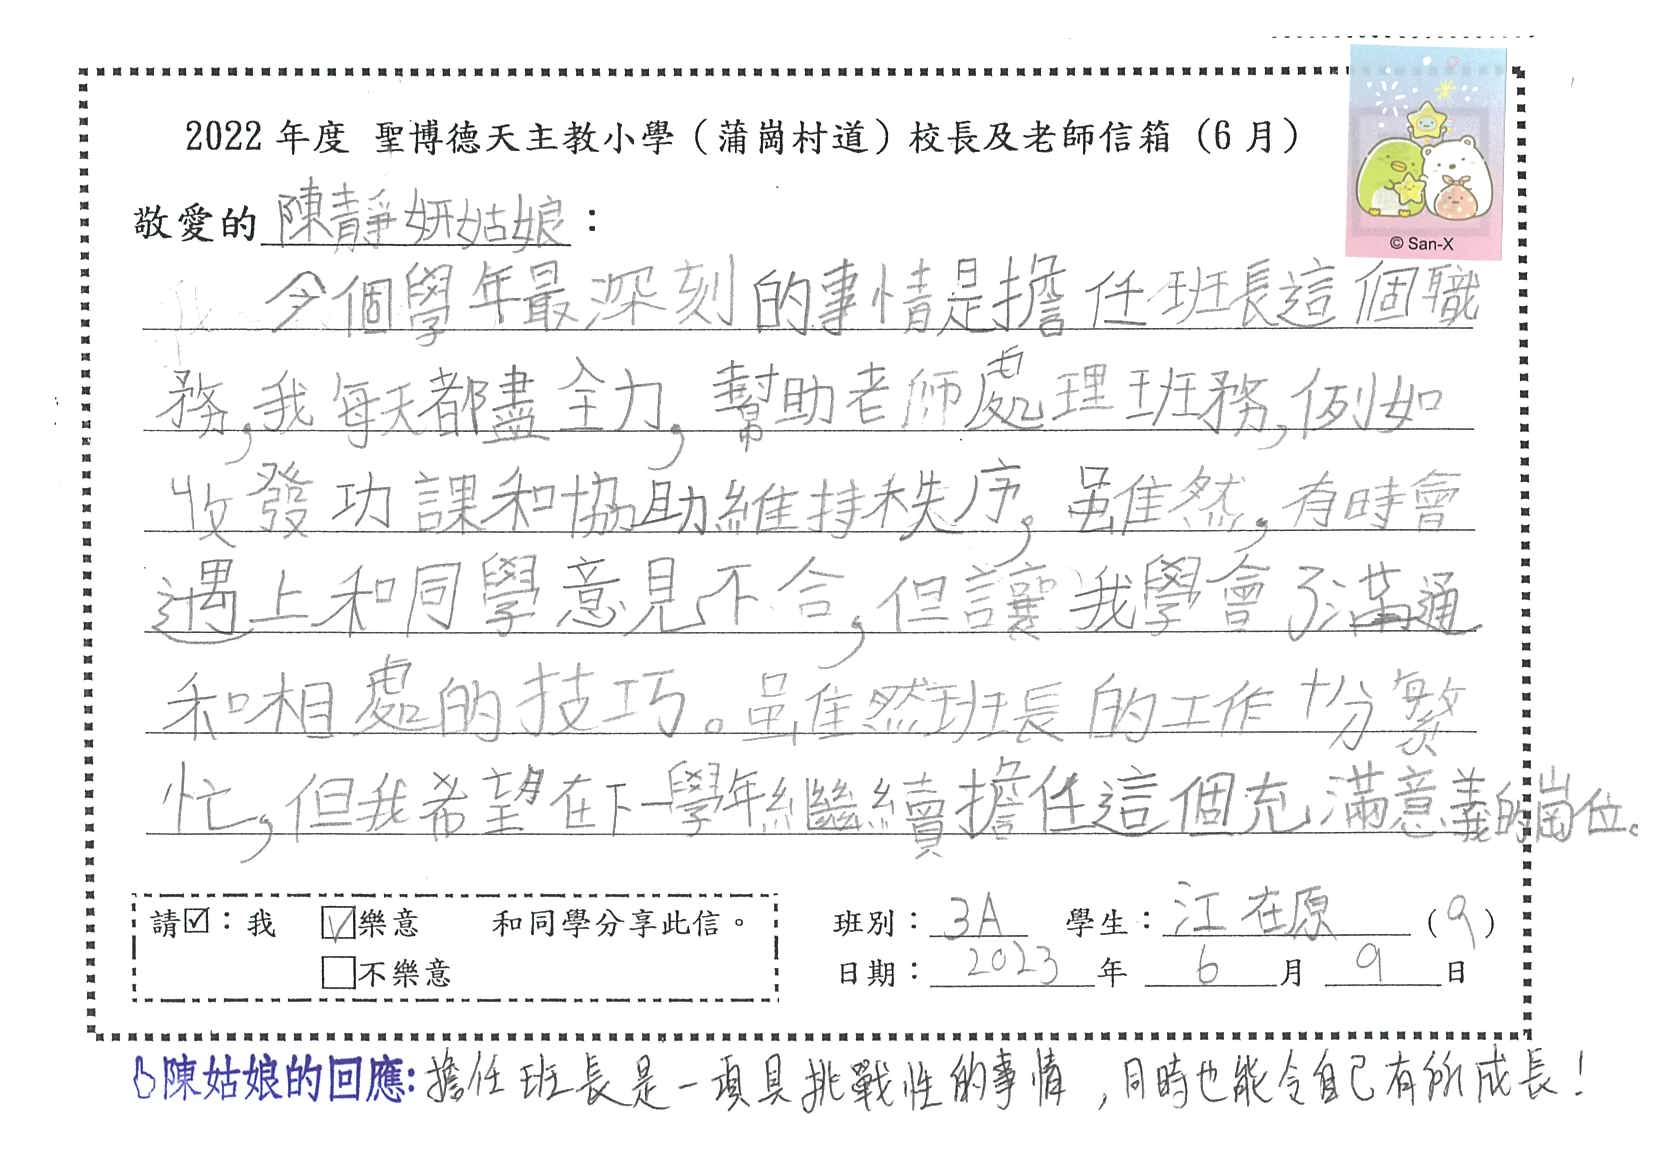 2022 年度 聖博德天主教小學（蒲崗村道）校長及老師信箱（6 月）
敬愛的 陳靜妍姑娘：
© San-X
今個學年最深刻的事情是擔任班長這個職
務,我每天都盡全力,幫助老師處理班務,例如
收發功課和協助維持秩序,雖然,有時會
遇上和同學意見不合,但讓我學會了滿通
和相處的技巧。雖然班長的工作十分繁
忙,但我希望在下一學年繼續擔任這個充滿意義的崗位。
請☑：我 ☑樂意 和同學分享此信。 班別：3A 學生：江在原 (9)
☐不樂意 日期：2023 年 6 月 9 日
陳姑娘的回應:擔任班長是一項具挑戰性的事情,同時也能令自己有所成長!